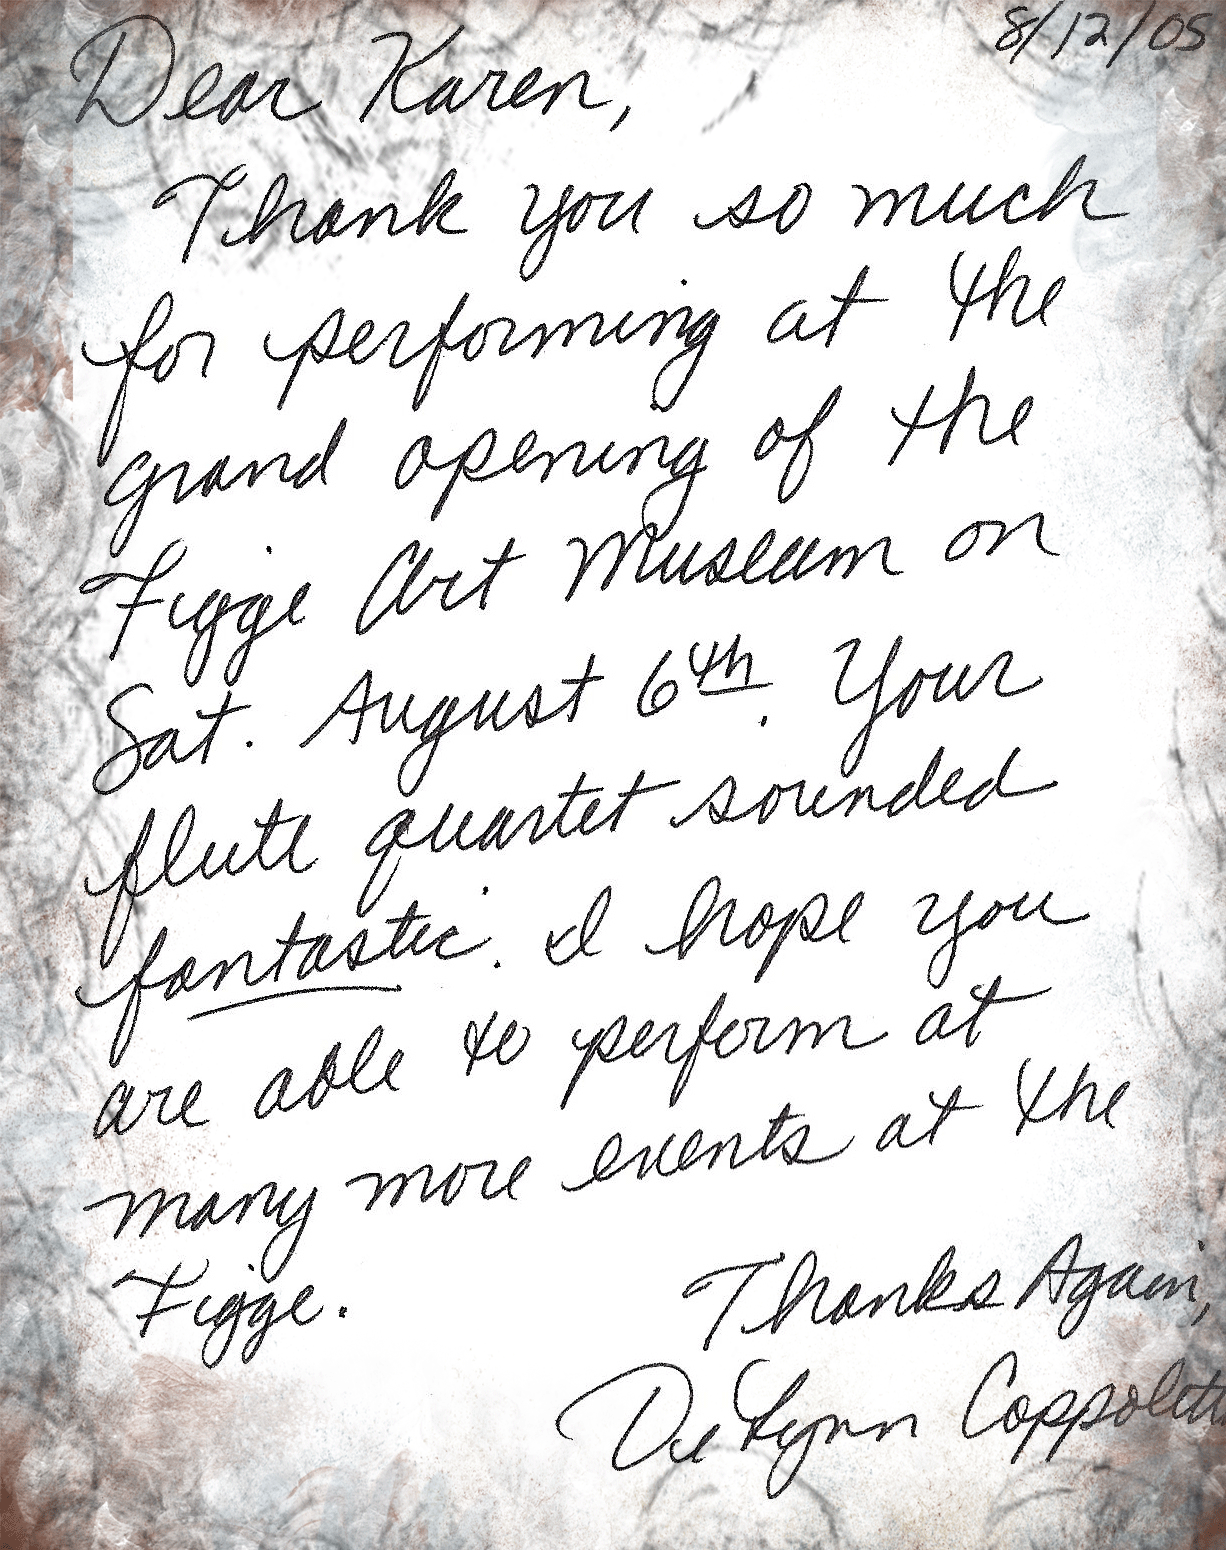 8/12/05
Dear Karen,
Thank you so much
for performing at the
grand opening of the
Figge Art Museum on
Sat. August 6th. Your
flute quartet sounded
fantastic. I hope you
are able to perform at
many more events at the
Figge.
Thanks Again,
DeLynn Coppolett